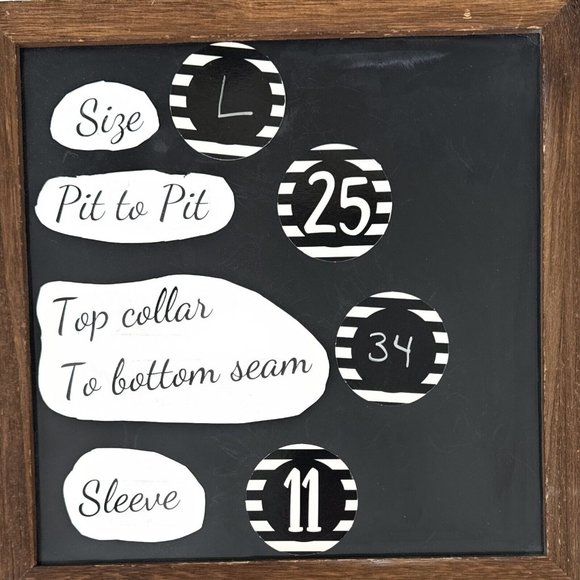 Size L
Pit to Pit 25
Top collar
To bottom seam 34
Sleeve 11